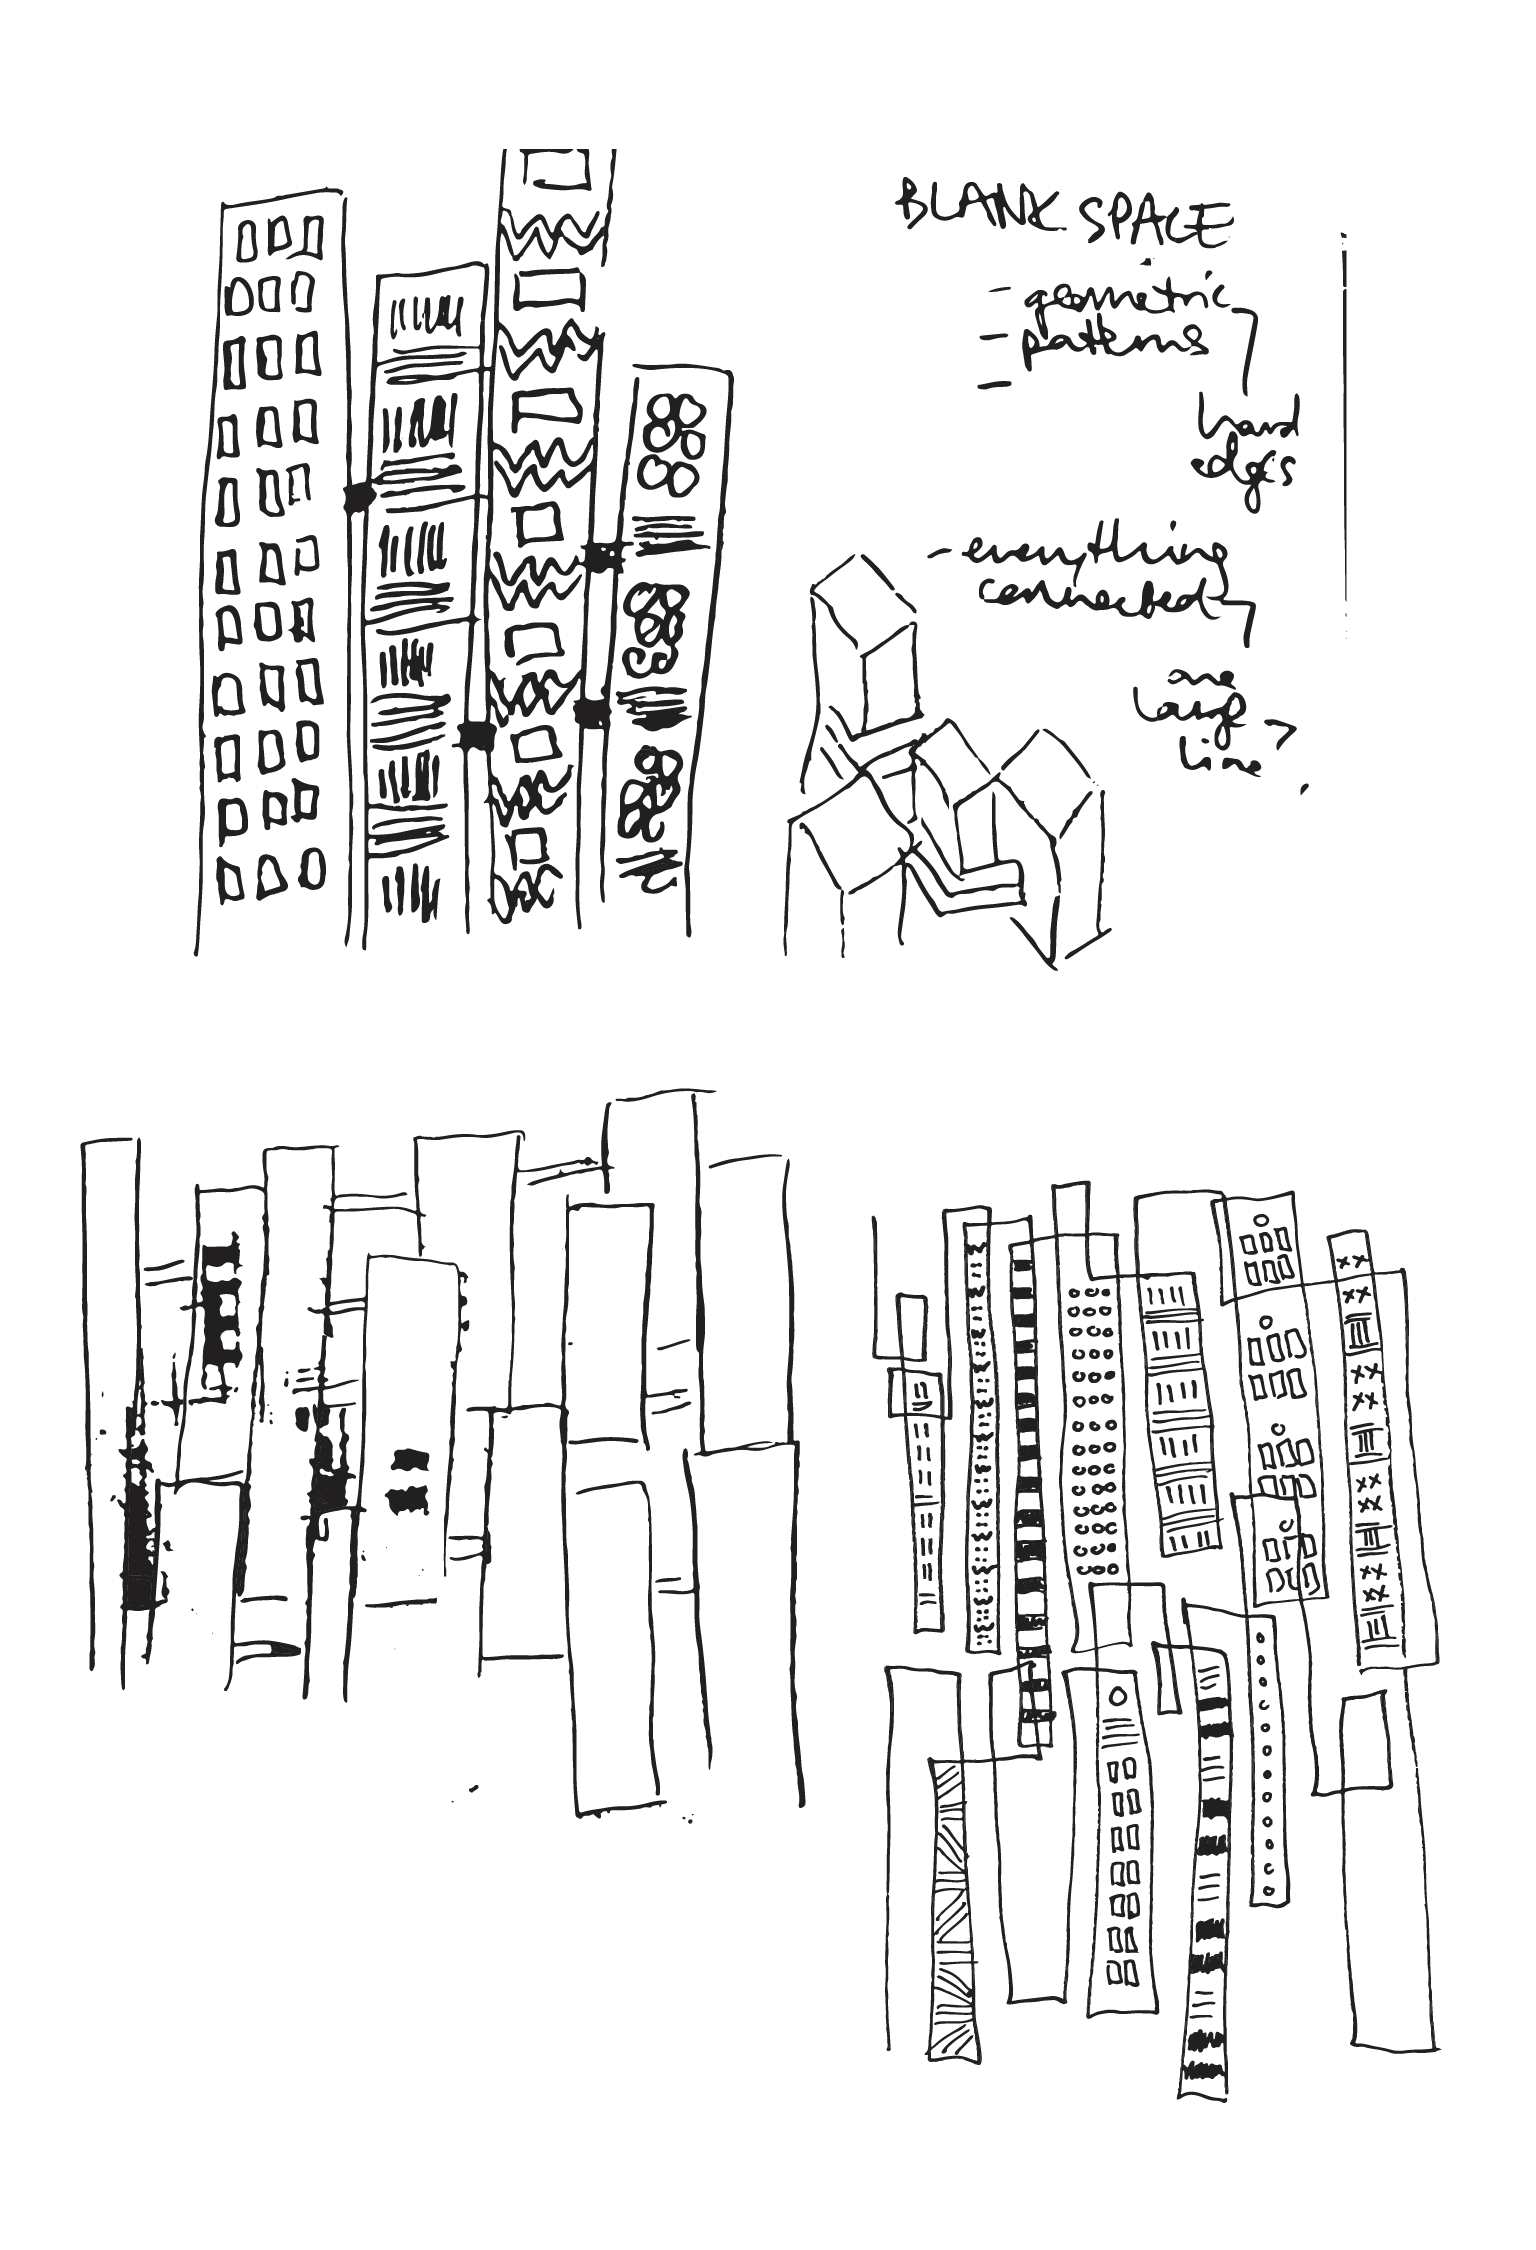 BLANK SPACE
- geometric
- patterns
-
hard
edges
- everything
connected
one
large
line